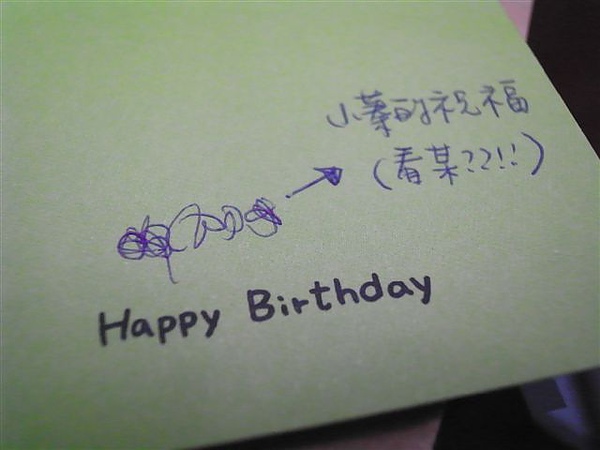 小蓁的祝福
(看某??!!)
Happy Birthday